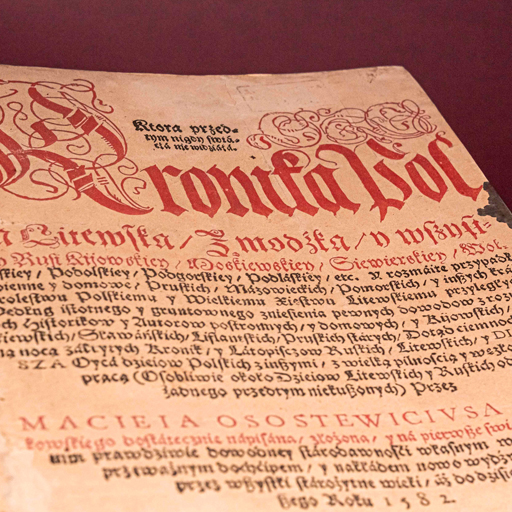 Ktora przed-
tym nigdy świa-
tła nie widziáłá.
Kronika Pol
Litewska / Zmodzka / y wszyst-
Rusi Kijowskiey / Moskiewskiey / Siewierskiey / Wol-
skiey / Podolskiey / Podgorskiey / Podláskiey / etc. Y rozmáite przypadk
oienne y domowe / Pruskich / Mázowieckich / Pomorskich / y inszych krá
rolestwu Polskiemu y Wielkiemu Xięstwu Litewskiemu przyległyc
edług istotnego y gruntownego zniesienia pewnych dowodow z roz
ch Historikow y Autorow postronnych / y domowych / y Kijowskich /
kiewskich / Sławáńskich / Liflantskich / Pruskich stárych / Dotąd ciemno
ną nocą zákrytych Kronik / y Látopiszczow Ruskich / Litewskich / y D
SZA Oycá dzieiow Polskich z inszymi / z wielką pilnością y węzł
pracą (Osobliwie około Dzieiow Litewskich y Ruskich o
żadnego przedtym niekuszonych) Przez
MACIEIA OSOSTEWICIVSA
kowskiego dostátecznie nápisána / złożona / y ná pierwsze świ
nim prawdziwie dowodney stárodawności własnym w
przeważnym dochćipem / y nakłádem nowo wydźw
przez wszystki stárożytne wieki / áż do dzisie
szego Roku 1582.